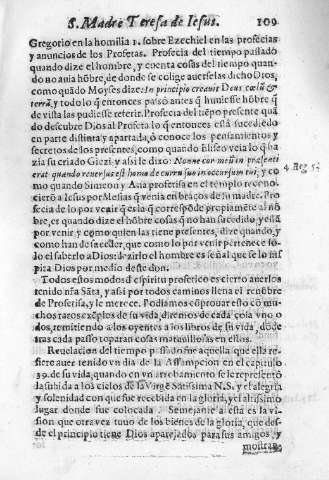 S. Madre Teresa de Iesus. 109
Gregorio en la homilia 1. sobre Ezechiel en las profecias
y anuncios de los Profetas. Profecia del tiempo passado
quando dize el hombre, y cuenta cosas del tiempo quan-
do no auia hõbre, de donde se colige auerselas dicho Dios,
como quãdo Moyses dize: In principio creauit Deus cælũ &
terrã, y todo lo q̃ entonces passò antes q̃ huuiesse hõbre q̃
de vista las pudiesse referir. Profecia del tiẽpo presente quã
do descubre Dios al Profeta lo q̃ entonces està sucediendo
en parte distinta y apartada, ò conoce los pensamientos y
secretos de los presentes, como quando Eliseo veia lo q̃ ha
zia su criado Giezi y assi le dixo: Nonne cor meũ in præsenti
erat quando reuersus est homo de curru suo in occursum tui, y co
4. Reg. 5.
mo quando Simeon y Ana profetisa en el templo recono-
cierõ a Iesus por Mesias q̃ venia en braços de su madre. Pro
fecia de lo por venir q̃ es la q̃ correspõde propiamẽte al nõ
bre, es quando dize el hõbre cosas q̃ no han sucedido, y està
por venir y como quien las tiene presentes, dize quando, y
como han de suceder, que como lo por venir pertenece so-
lo el saberlo a Dios: dezirlo el hombre es señal que se lo ins
pira Dios por medio deste don.
Todos estos modos d̃ espiritu profetico es cierto auerlos
tenido nr̃a Sãta, y assi por todos caminos llena el renõbre
de Profetisa, y le merece. Podiamos cõprouar esto cõ mu-
chos raros exẽplos de su vida, diremos de cada cosa vno o
dos, remitiendo a los oyentes a los libros de su vida, dõde
tras cada passo toparan cosas marauillosas en estos.
Reuelacion del tiempo passado fue aquella que ella re-
fiere auer tenido vn dia de la Assumpcion en el capitulo
39. de su vida, quando en vn arrebamiento se le represẽtò
la subida a los cielos de la Virgẽ Sãtissima N.S. y el alegria
y solenidad con que fue recebida en la gloria, y el altissimo
lugar donde fue colocada. Semejante a esta es la vi-
sion que otra vez tuuo de los bienes de la gloria, que des-
de el principio tiene Dios aparejados para sus amigos, y
mostran-